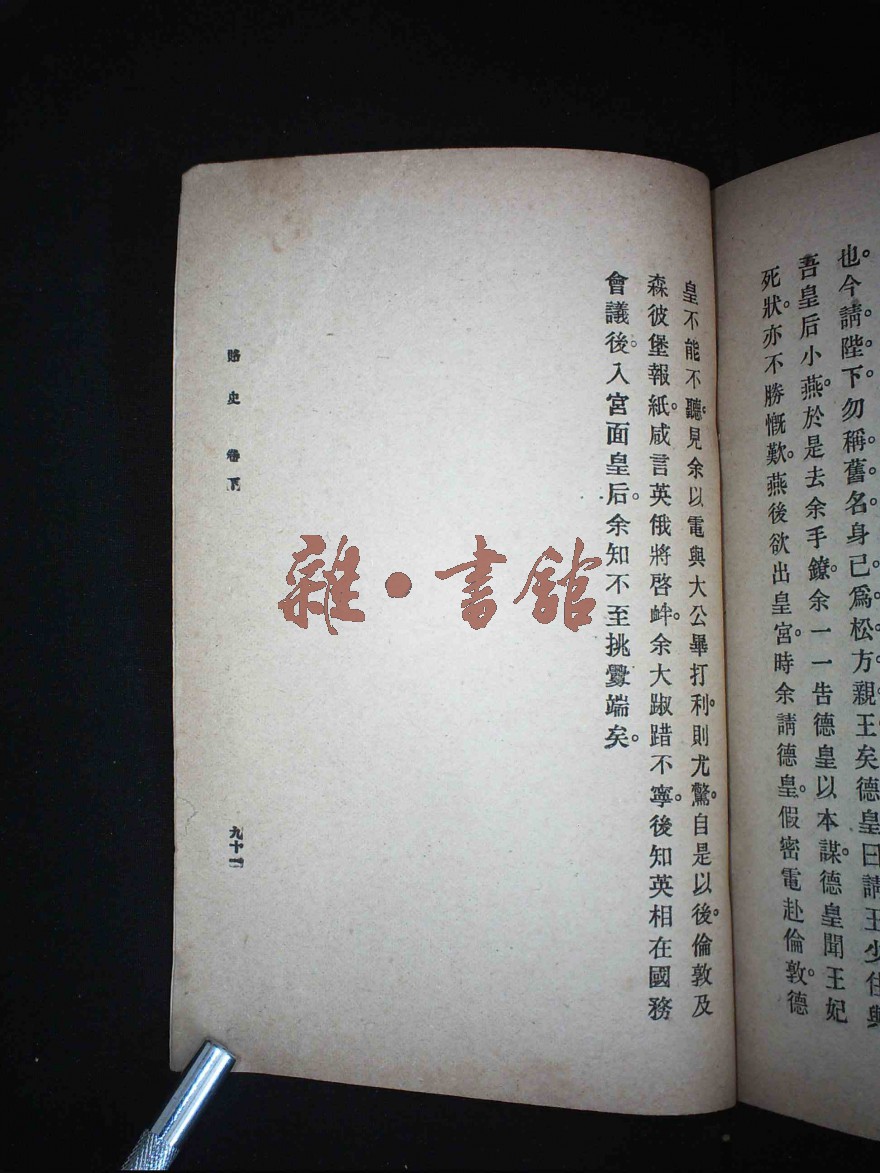 也。今請陛下。勿稱舊名。身已爲松方親王矣。德皇曰請王少住與
吾皇后小燕。於是去余手鐐。余一一告德皇以本謀。德皇聞王妃
死狀。亦不勝慨歎。燕後欲出皇宮。時余請德皇。假密電赴倫敦。德
皇不能不聽。見余以電與大公畢打利。則尤驚。自是以後。倫敦及
森彼堡報紙。咸言英俄將啓衅。余大踧踖不寧。後知英相在國務
會議後。入宮面皇后。余知不至挑釁端矣。
賂史 卷下
九十
雜·書館